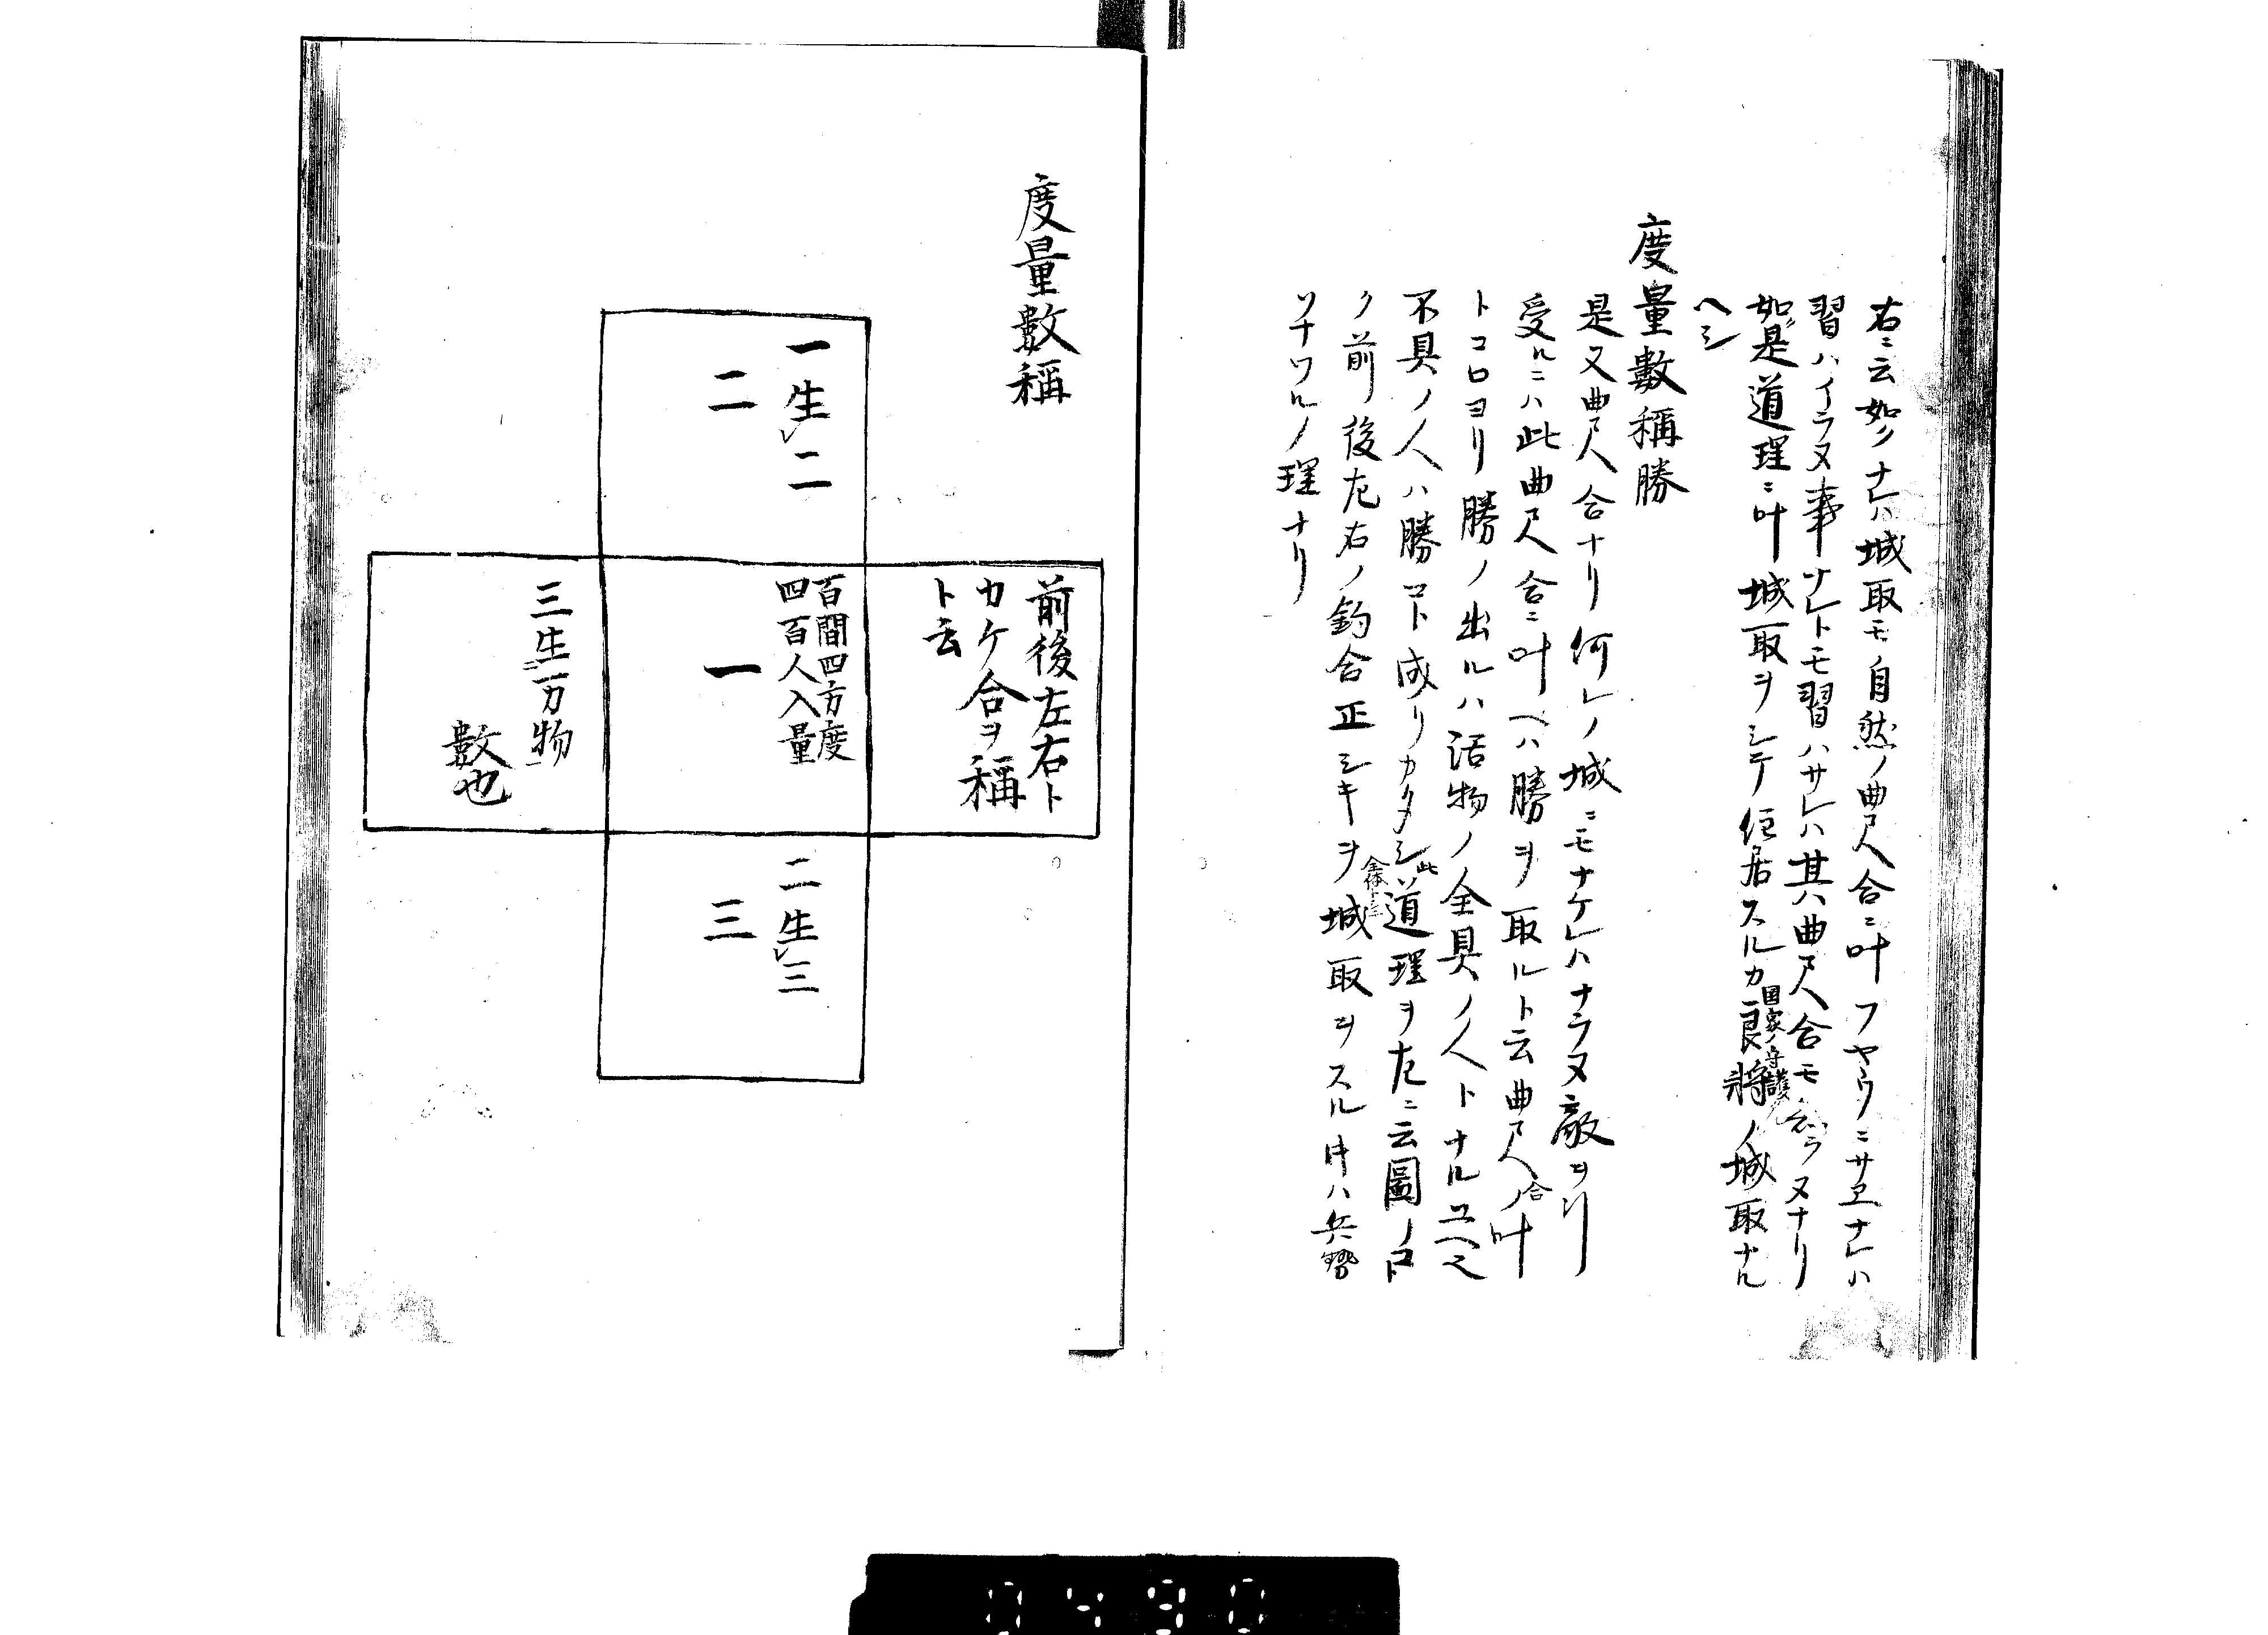 右ニ云如クナレハ城取モ自然ノ曲尺合ニ叶フヤウニサヱナレハ
習ハイラヌ事ナレトモ習ハサレハ其ハ曲尺合モ知ラヌナリ
如是道理ニ叶城取ヲシテ住居スルカ良将ノ城取ナル
国家ノ守護
ヘシ
度量數稱勝
是又曲尺合ナリ何レノ城ニモナケレハナラヌ敵ヨリ
受ルニハ此曲尺合ニ叶ヘハ勝ヲ取ルト云曲尺合ノ叶
トコロヨリ勝ノ出ルハ活物ノ全具ノ人トナルユヘニ
不具ノ人ハ勝コト成リカタシ此道理ヲ左ニ云圖ノコト
ク前後左右ノ釣合正シキヲ城取ヲスル時ハ兵勢
ソナワルノ理ナリ
度量數稱
前後左右ト
カケ合ヲ稱
ト云
一生レ二
二
百間四方度
四百人入量
一
二生レ三
三
三生二万物一
數也
0490